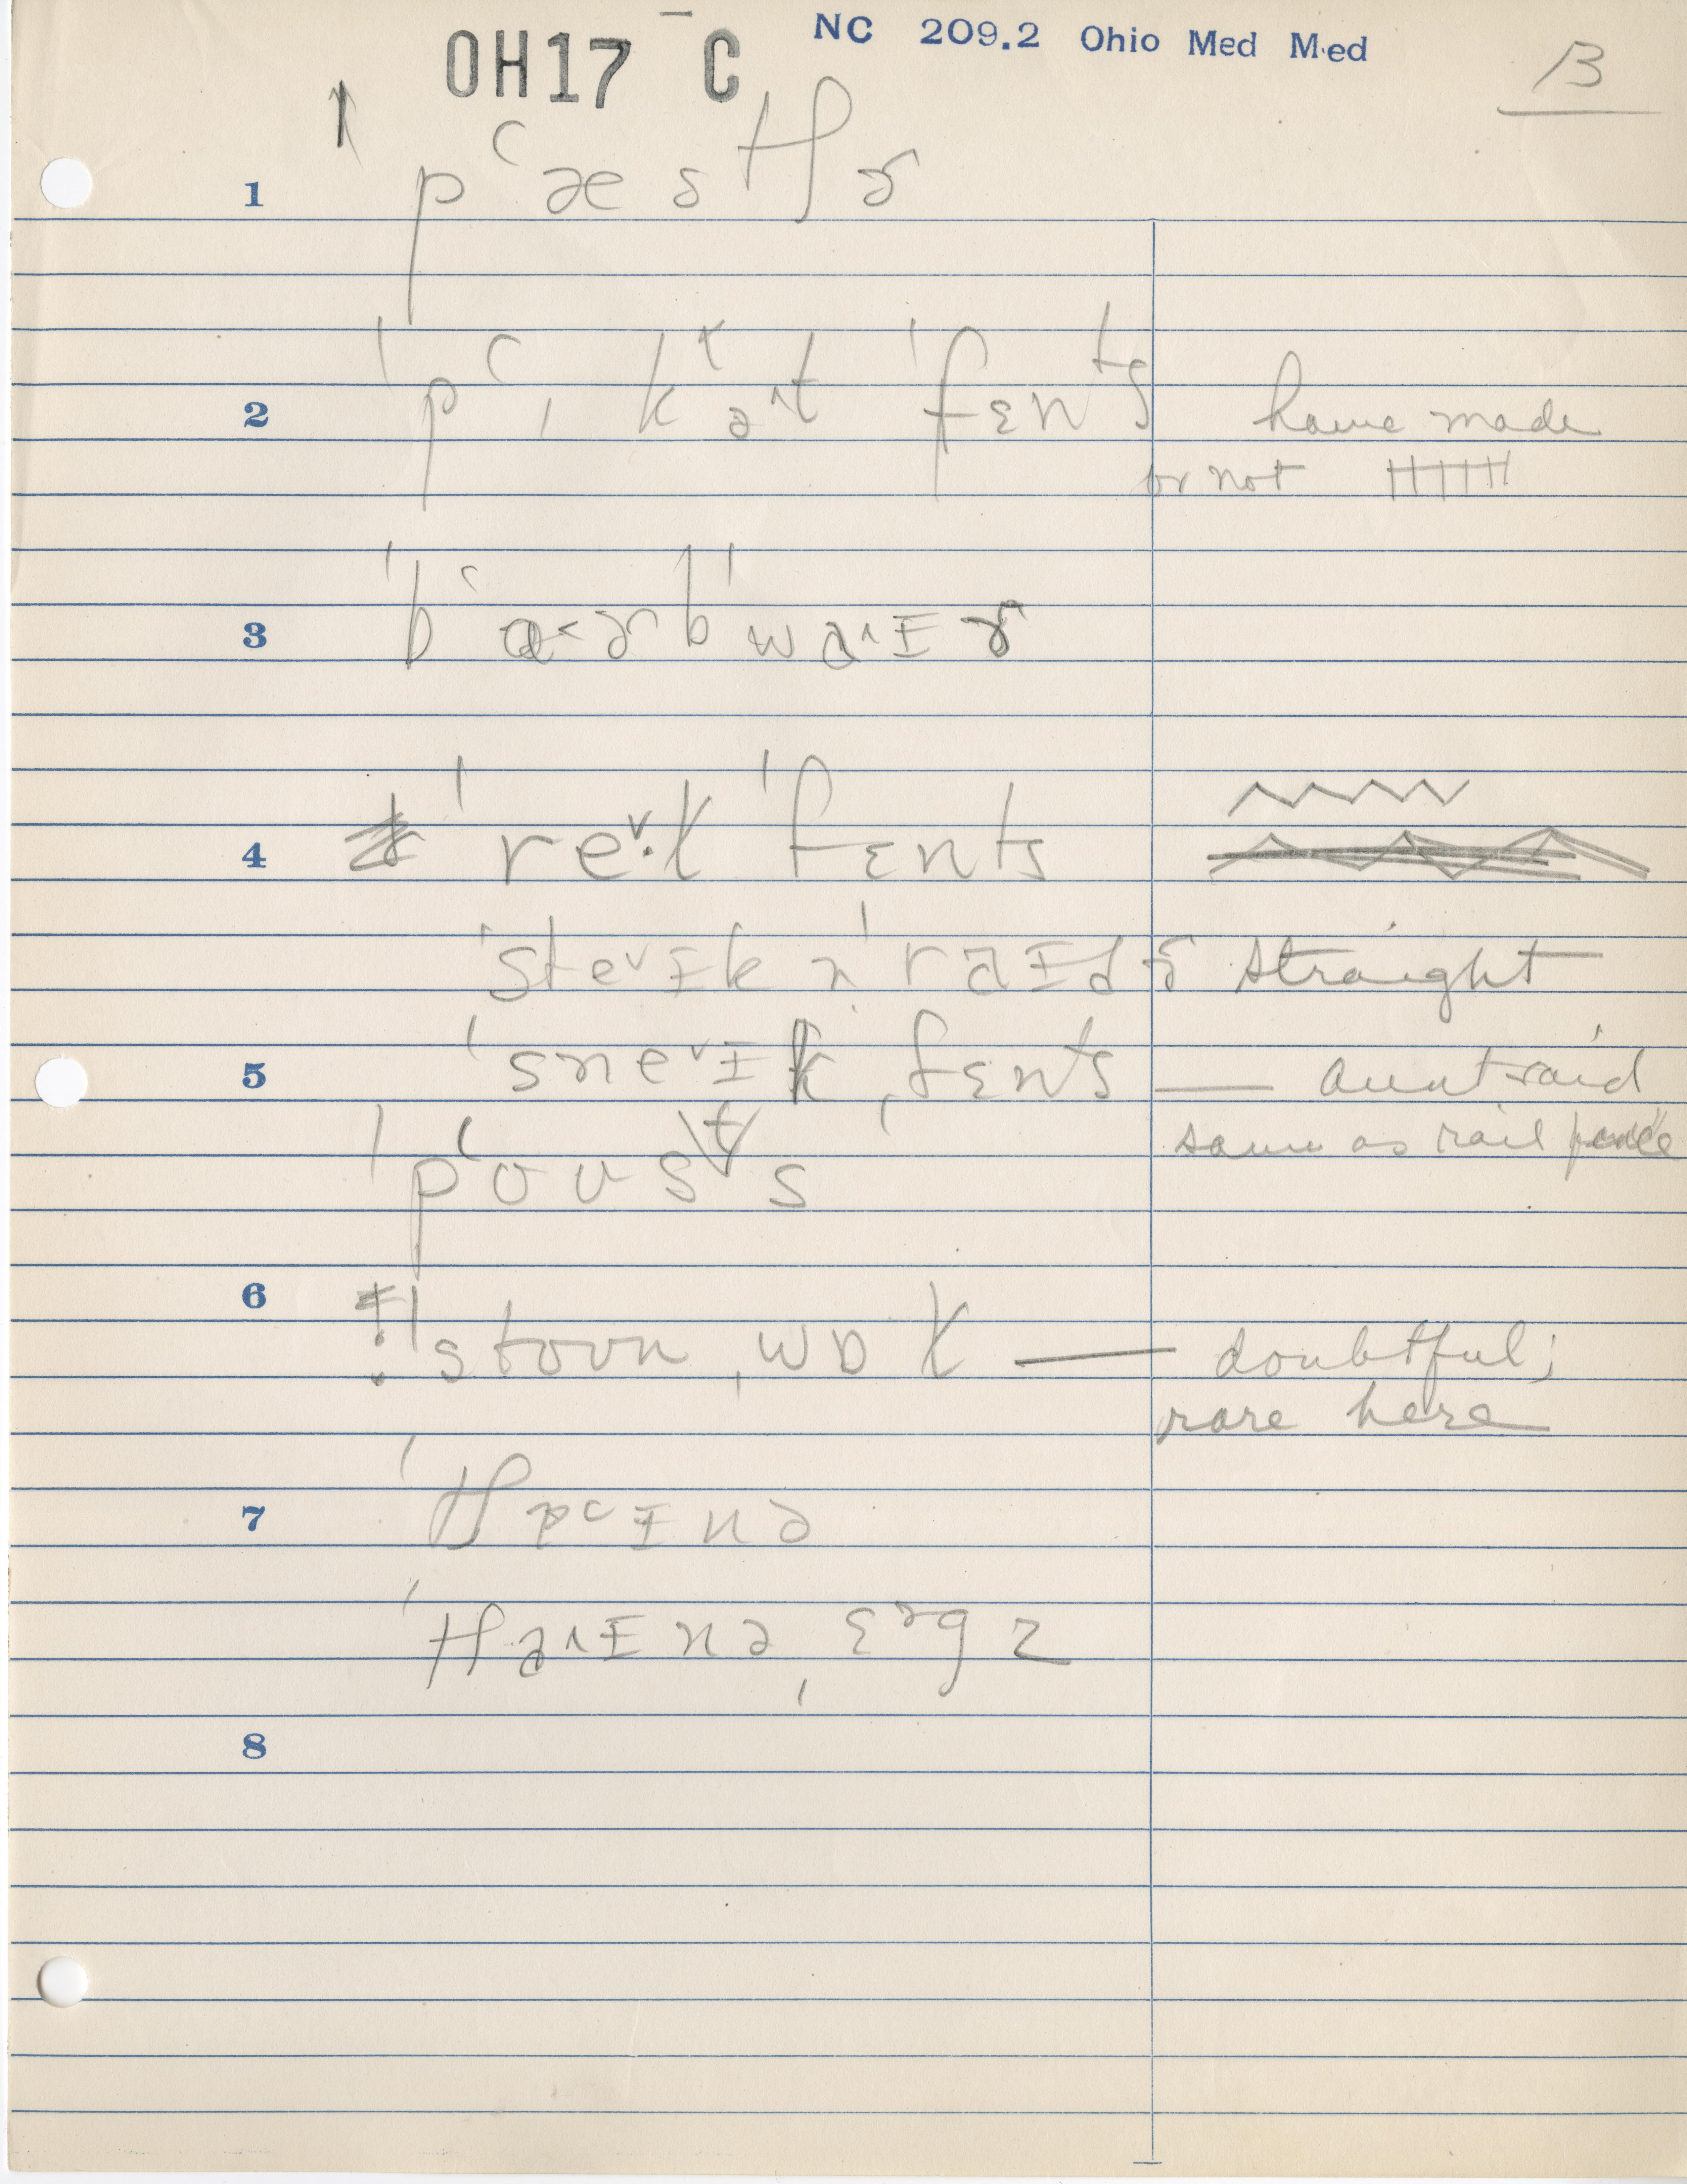 OH17 C NC 209.2 Ohio Med Med B
↑
1 pʻæstʃɚ
2 ˈpʻɪkət ˈfents home made
or not
3 ˈbɑ˂ɚbˈwaɪɚ
4 ˈreᵛ·l ˈfɛnts
ˈsteᵛɪk n ˈraɪdɚ straight
5 ˈsneᵛɪk ˌfɛnts — aunt said
same as rail fence
ˈpʻoʊsts
6 ˈstoʊn ˌwɒl — doubtful;
rare here
7 ˈtʃɑɪnə
ˈtʃaɪnə ˌɛᵊgz
8